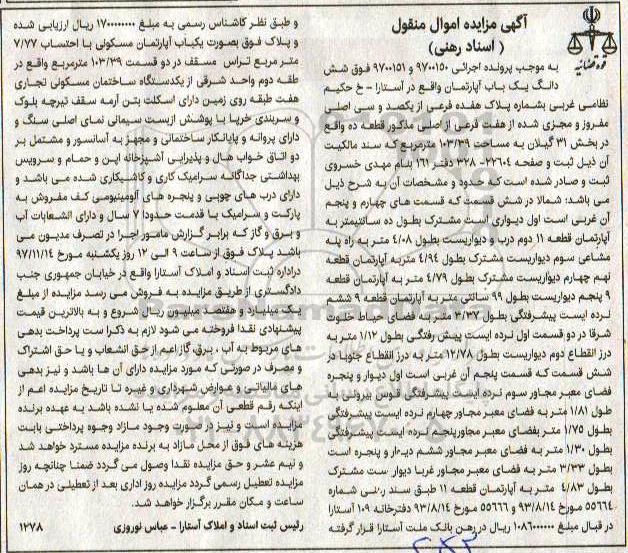 آگهی مزایده اموال منقول
( اسناد رهنی)
قوه قضائیه
به موجب پرونده اجرائی ۹۷۰۰۱۵۰ و ۹۷۰۰۱۵۱ فوق شش
دانگ یک باب آپارتمان واقع در آستارا - خ حکیم
نظامی غربی بشماره پلاک هفده فرعی از یکصد و سی اصلی
مفروز و مجزی شده از هفت فرعی از اصلی مذکور قطعه ده واقع
در بخش ۳۱ گیلان به مساحت ۱۰۳/۳۹ مترمربع که سند مالکیت
آن ذیل ثبت و صفحه ۲۲۶۰۴- ۳۲۸ دفتر ۱۶۱ بنام مهدی خسروی
ثبت و صادر شده است که حدود و مشخصات آن به شرح ذیل
می باشد: شمالا در شش قسمت که قسمت های چهارم و پنجم
آن غربی است اول دیواری است مشترک بطول ده سانتیمتر به
آپارتمان قطعه ۱۱ دوم درب و دیواریست بطول ۴/۰۸ متر به راه پله
مشاعی سوم دیواریست مشترک بطول ۴/۹۴ متربه آپارتمان قطعه
نهم چهارم دیواریست مشترک بطول ۴/۷۹ متر به آپارتمان قطعه
۹ پنجم دیواریست بطول ۹۹ سانتی متر به آپارتمان قطعه ۹ ششم
نرده ایست پیشرفتگی بطول ۳/۳۷ متر به فضای حیاط خلوت
شرقا در دو قسمت اول نرده ایست پیش رفتگی بطول ۱/۱۲ متر به
درز انقطاع دوم دیواریست بطول ۱۲/۷۸ متر به درز انقطاع جنوبا در
شش قسمت که قسمت پنجم آن غربی است اول دیوار و پنجره
فضای معبر مجاور سوم نرده ایست پیشرفتگی قوس بیرونی به
طول ۱/۸۱ متر به فضای معبر مجاور چهارم نرده ایست پیشرفتگی
بطول ۱/۷۵ متر بفضای معبر مجاورپنجم نرده ایست پیشرفتگی
بطول ۱/۳۰ متر به فضای معبر مجاور ششم دیوار و پنجره است
بطول ۳/۳۳ متر به فضای معبر مجاور غربا دیوار ست مشترک
بطول ۴/۸۳ متر به آپارتمان قطعه ۱۱ طبق سند رهنی شماره
۵۵۶۶۴ مورخ ۹۳/۸/۱۴ و ۵۵۶۶۶ مورخ ۹۳/۸/۱۴ دفترخانه ۱۰۹ آستارا
در قبال مبلغ ۱۰۸۶۰۰۰۰۰۰ ریال در رهن بانک ملت آستارا قرار گرفته
و طبق نظر کاشناس رسمی به مبلغ ۱۷۰۰۰۰۰۰۰۰ ریال ارزیابی شده
و پلاک فوق بصورت یکباب آپارتمان مسکونی با احتساب ۷/۷۷
متر مربع تراس مسقف در دو قسمت ۱۰۳/۳۹ مترمربع واقع در
طقه دوم واحد شرقی از یکدستگاه ساختمان مسکونی تجاری
هفت طبقه روی زمین دارای اسکلت بتن آرمه سقف تیرچه بلوک
و سربندی خرپا با پوشش ازبست سیمانی نمای اصلی سنگ و
دارای پروانه و پایانکار ساختمانی و مجهز به آسانسور و مشتمل بر
دو اتاق خواب هال و پذیرایی آشپزخانه اپن و حمام و سرویس
بهداشتی جداگانه سرامیک کاری و کاشیکاری شده می باشد و
دارای درب های چوبی و پنجره های آلومینیومی کف مفروش به
پارکت و سرامیک با قدمت حدودا ۷ سال و دارای انشعابات آب
و برق و گاز که برابر گزارش مامور اجرا در تصرف مدیون می
باشد پلاک فوق از ساعت ۹ الی ۱۲ روز یکشنبه مورخ ۹۷/۱۱/۱۴
دراداره ثبت اسناد و املاک آستارا واقع در خیابان جمهوری جنب
دادگستری از طریق مزایده به فروش می رسد مزایده از مبلغ
یک میلیارد و هفتصد میلیون ریال شروع و به بالاترین قیمت
پیشنهادی نقدا فروخته می شود لازم به ذکرا ست پرداخت بدهی
های مربوط به آب ، برق، گاز اعم از حق انشعاب و یا حق اشتراک
و مصرف در صورتی که مورد مزایده دارای آن ها باشد و نیز بدهی
های مالیاتی و عوارض شهرداری و غیره تا تاریخ مزایده اعم از
اینکه رقم قطعی آن معلوم شده یا نشده باشد به عهده برنده
مزایده است و نیز در صورت وجود مازاد وجوه پرداختی بابت
هزینه های فوق از محل مازاد به برنده مزایده مسترد خواهد شد
و نیم عشر و حق مزایده نقدا وصول می گردد ضمنا چنانچه روز
مزایده تعطیل رسمی گردد مزایده روز اداری بعد از تعطیلی در همان
ساعت و مکان مقرر برگزار خواهد شد.
رئیس ثبت اسناد و املاک آستارا - عباس نوروزی
۱۲۷۸